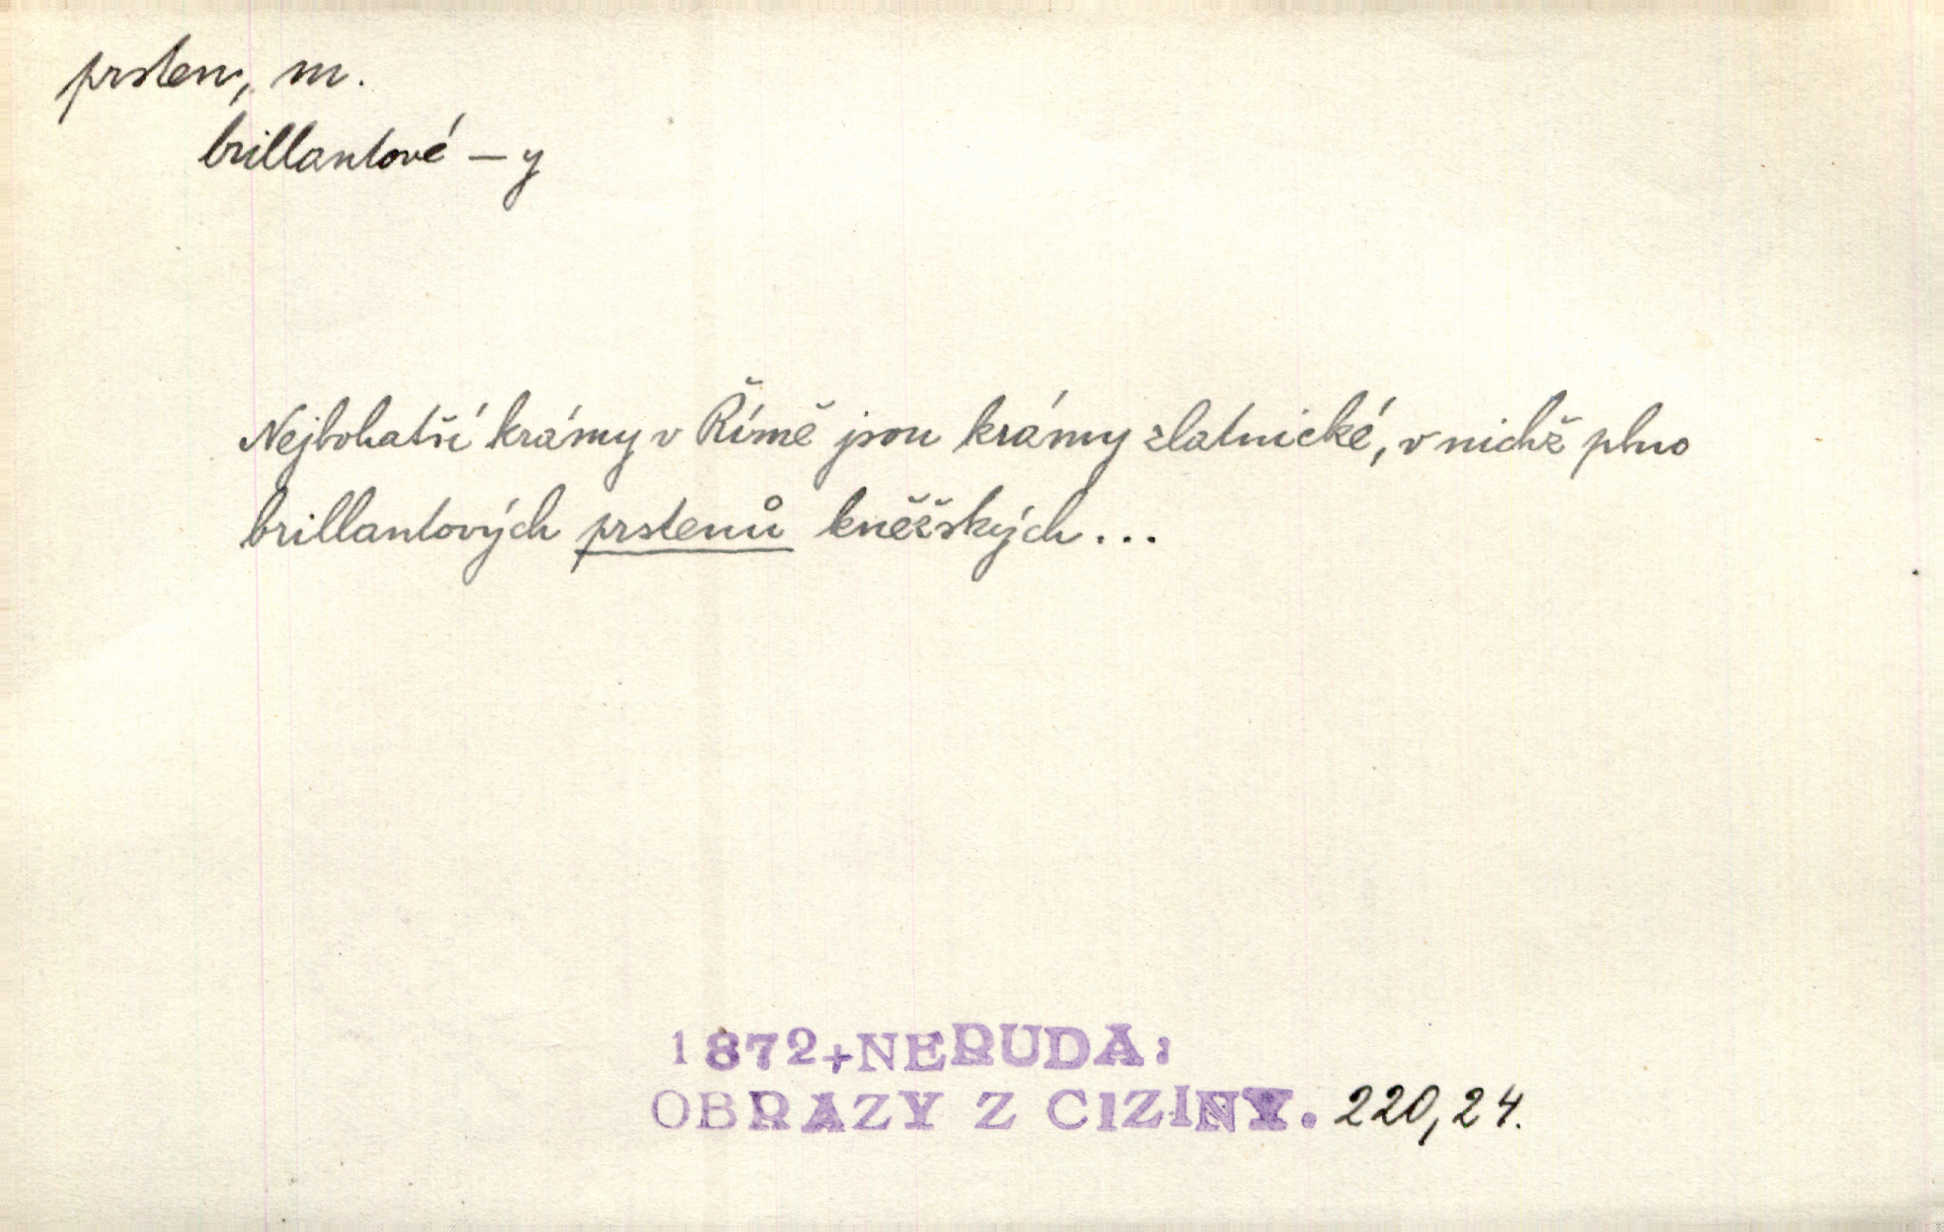 prsten, m.
brillantové – y
Nejbohatší krámy v Římě jsou krámy zlatnické, v nichž plno
brillantových prstenů kněžských...
1872+NERUDA:
OBRAZY Z CIZINY. 220,24.